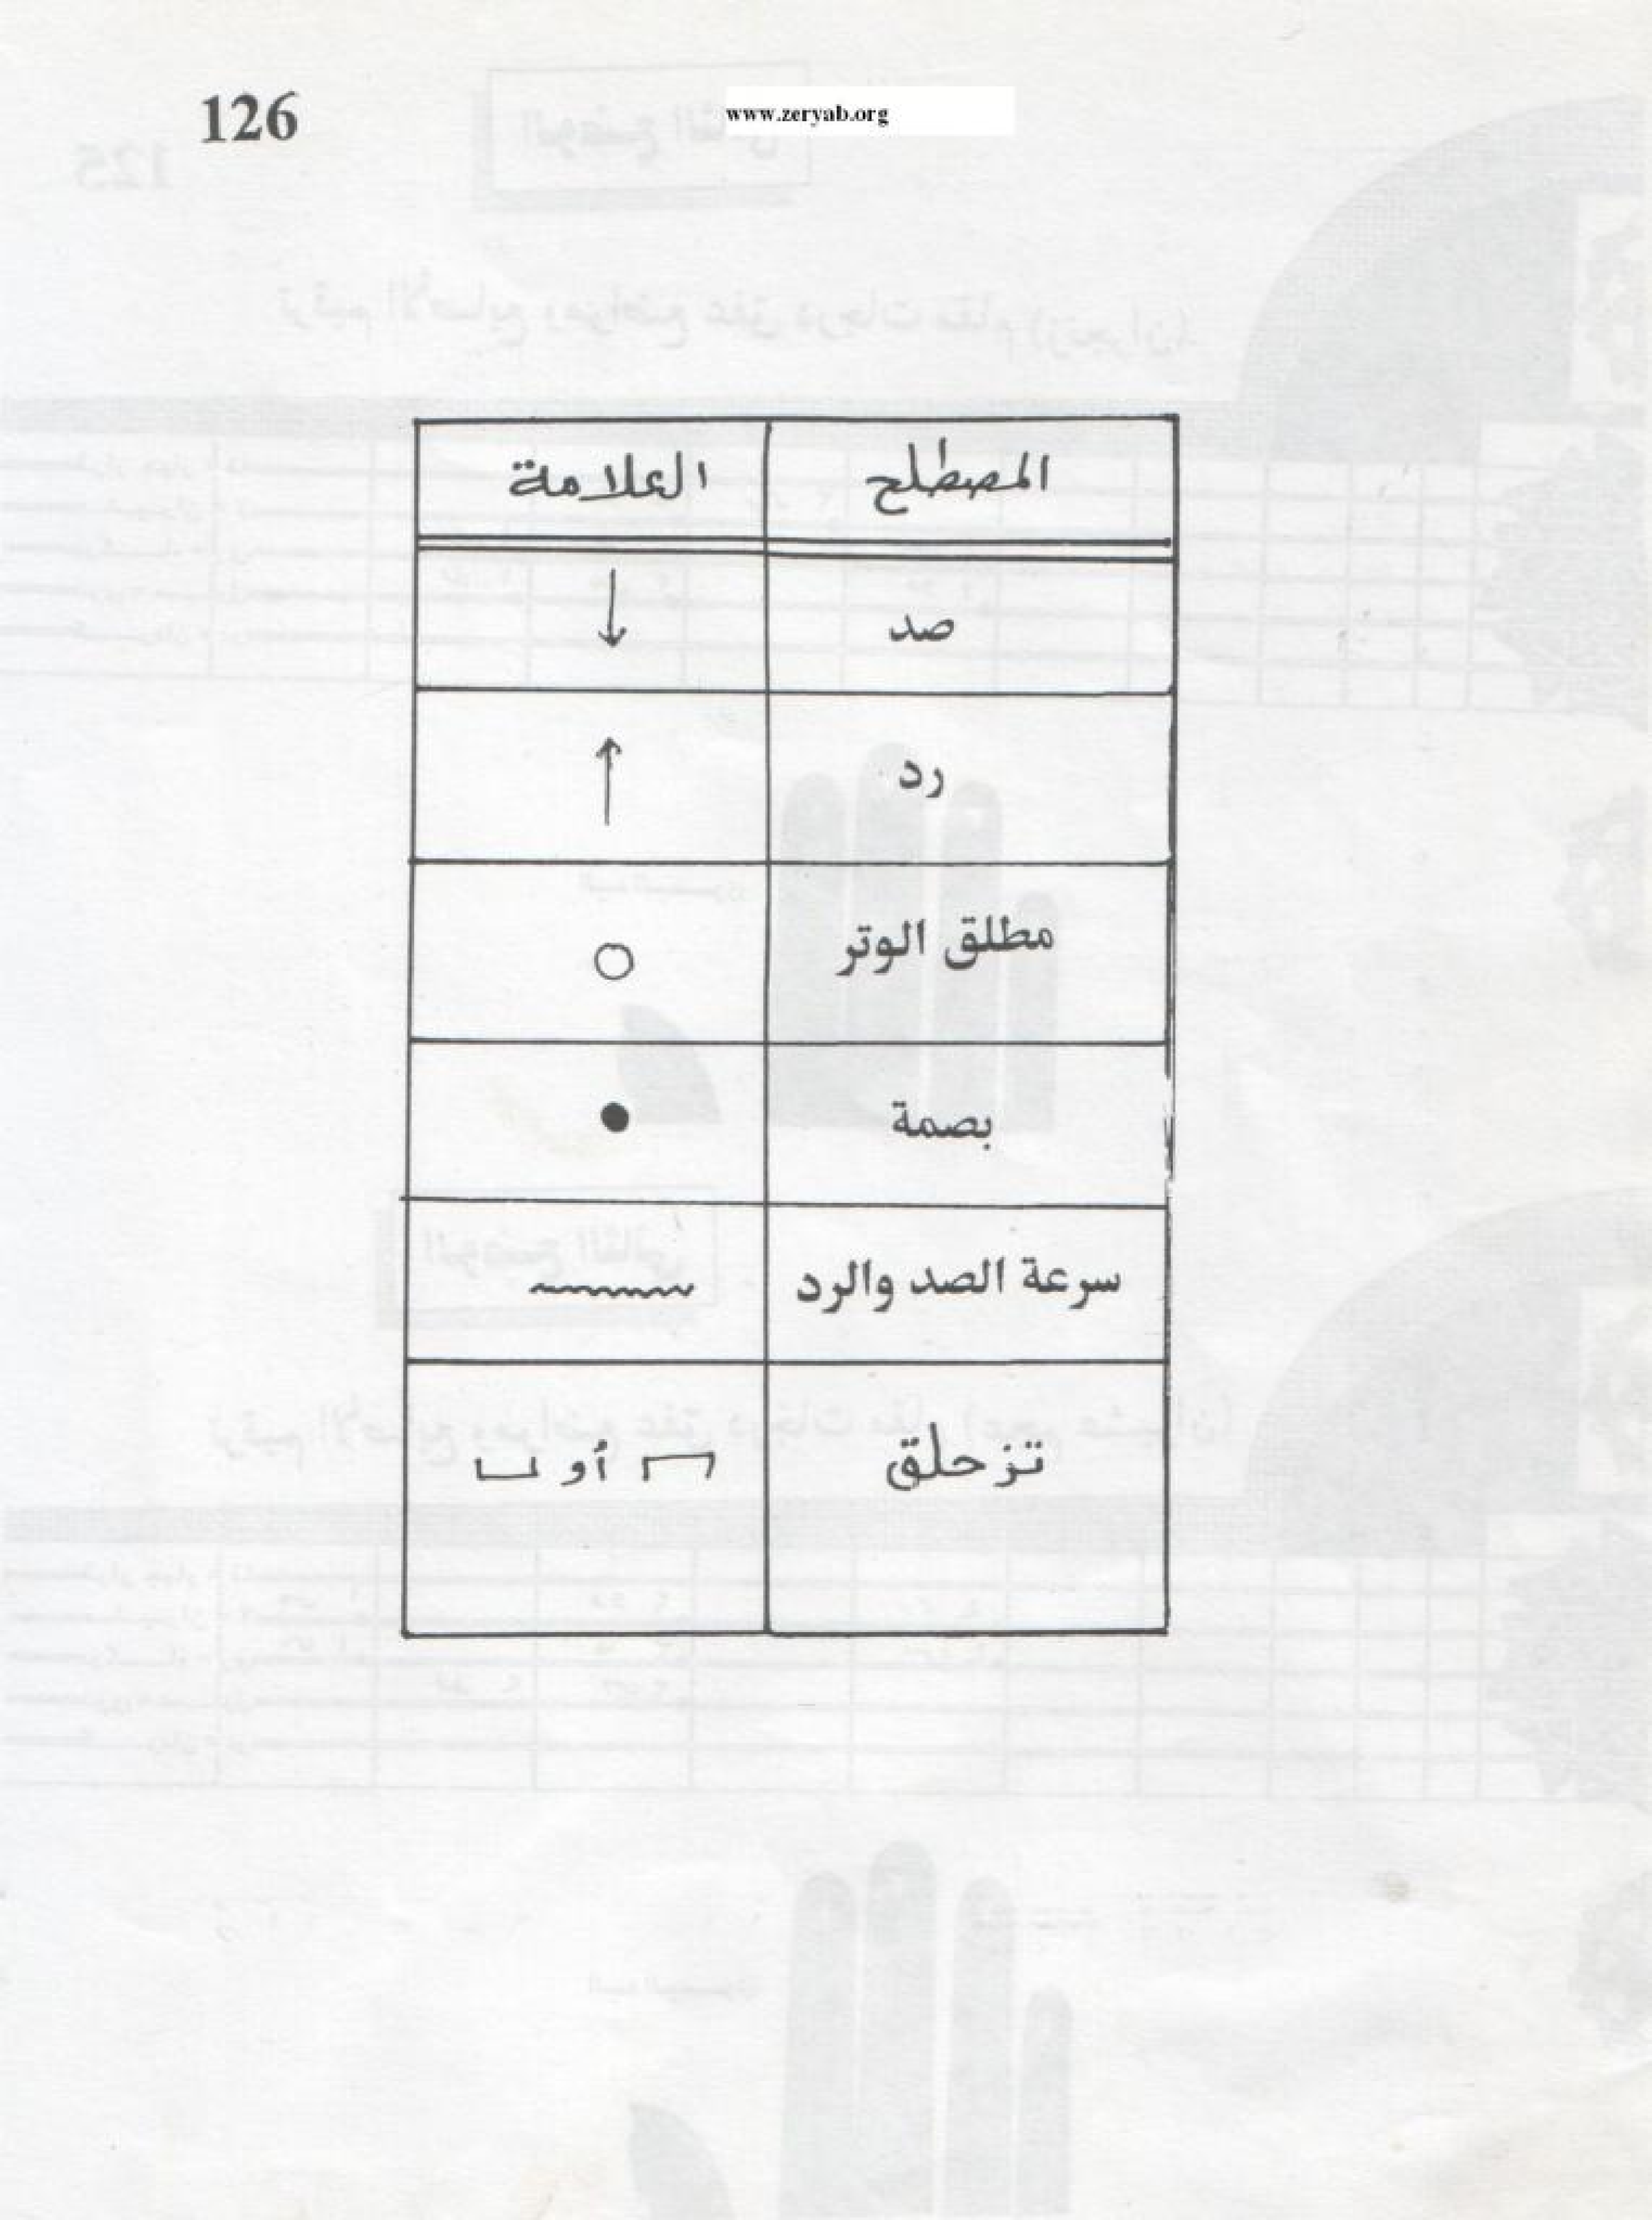 126
www.zeryab.org
المصطلح العلامة
صد ↓
رد ↑
مطلق الوتر ○
بصمة ●
سرعة الصد والرد
تزحلق أو